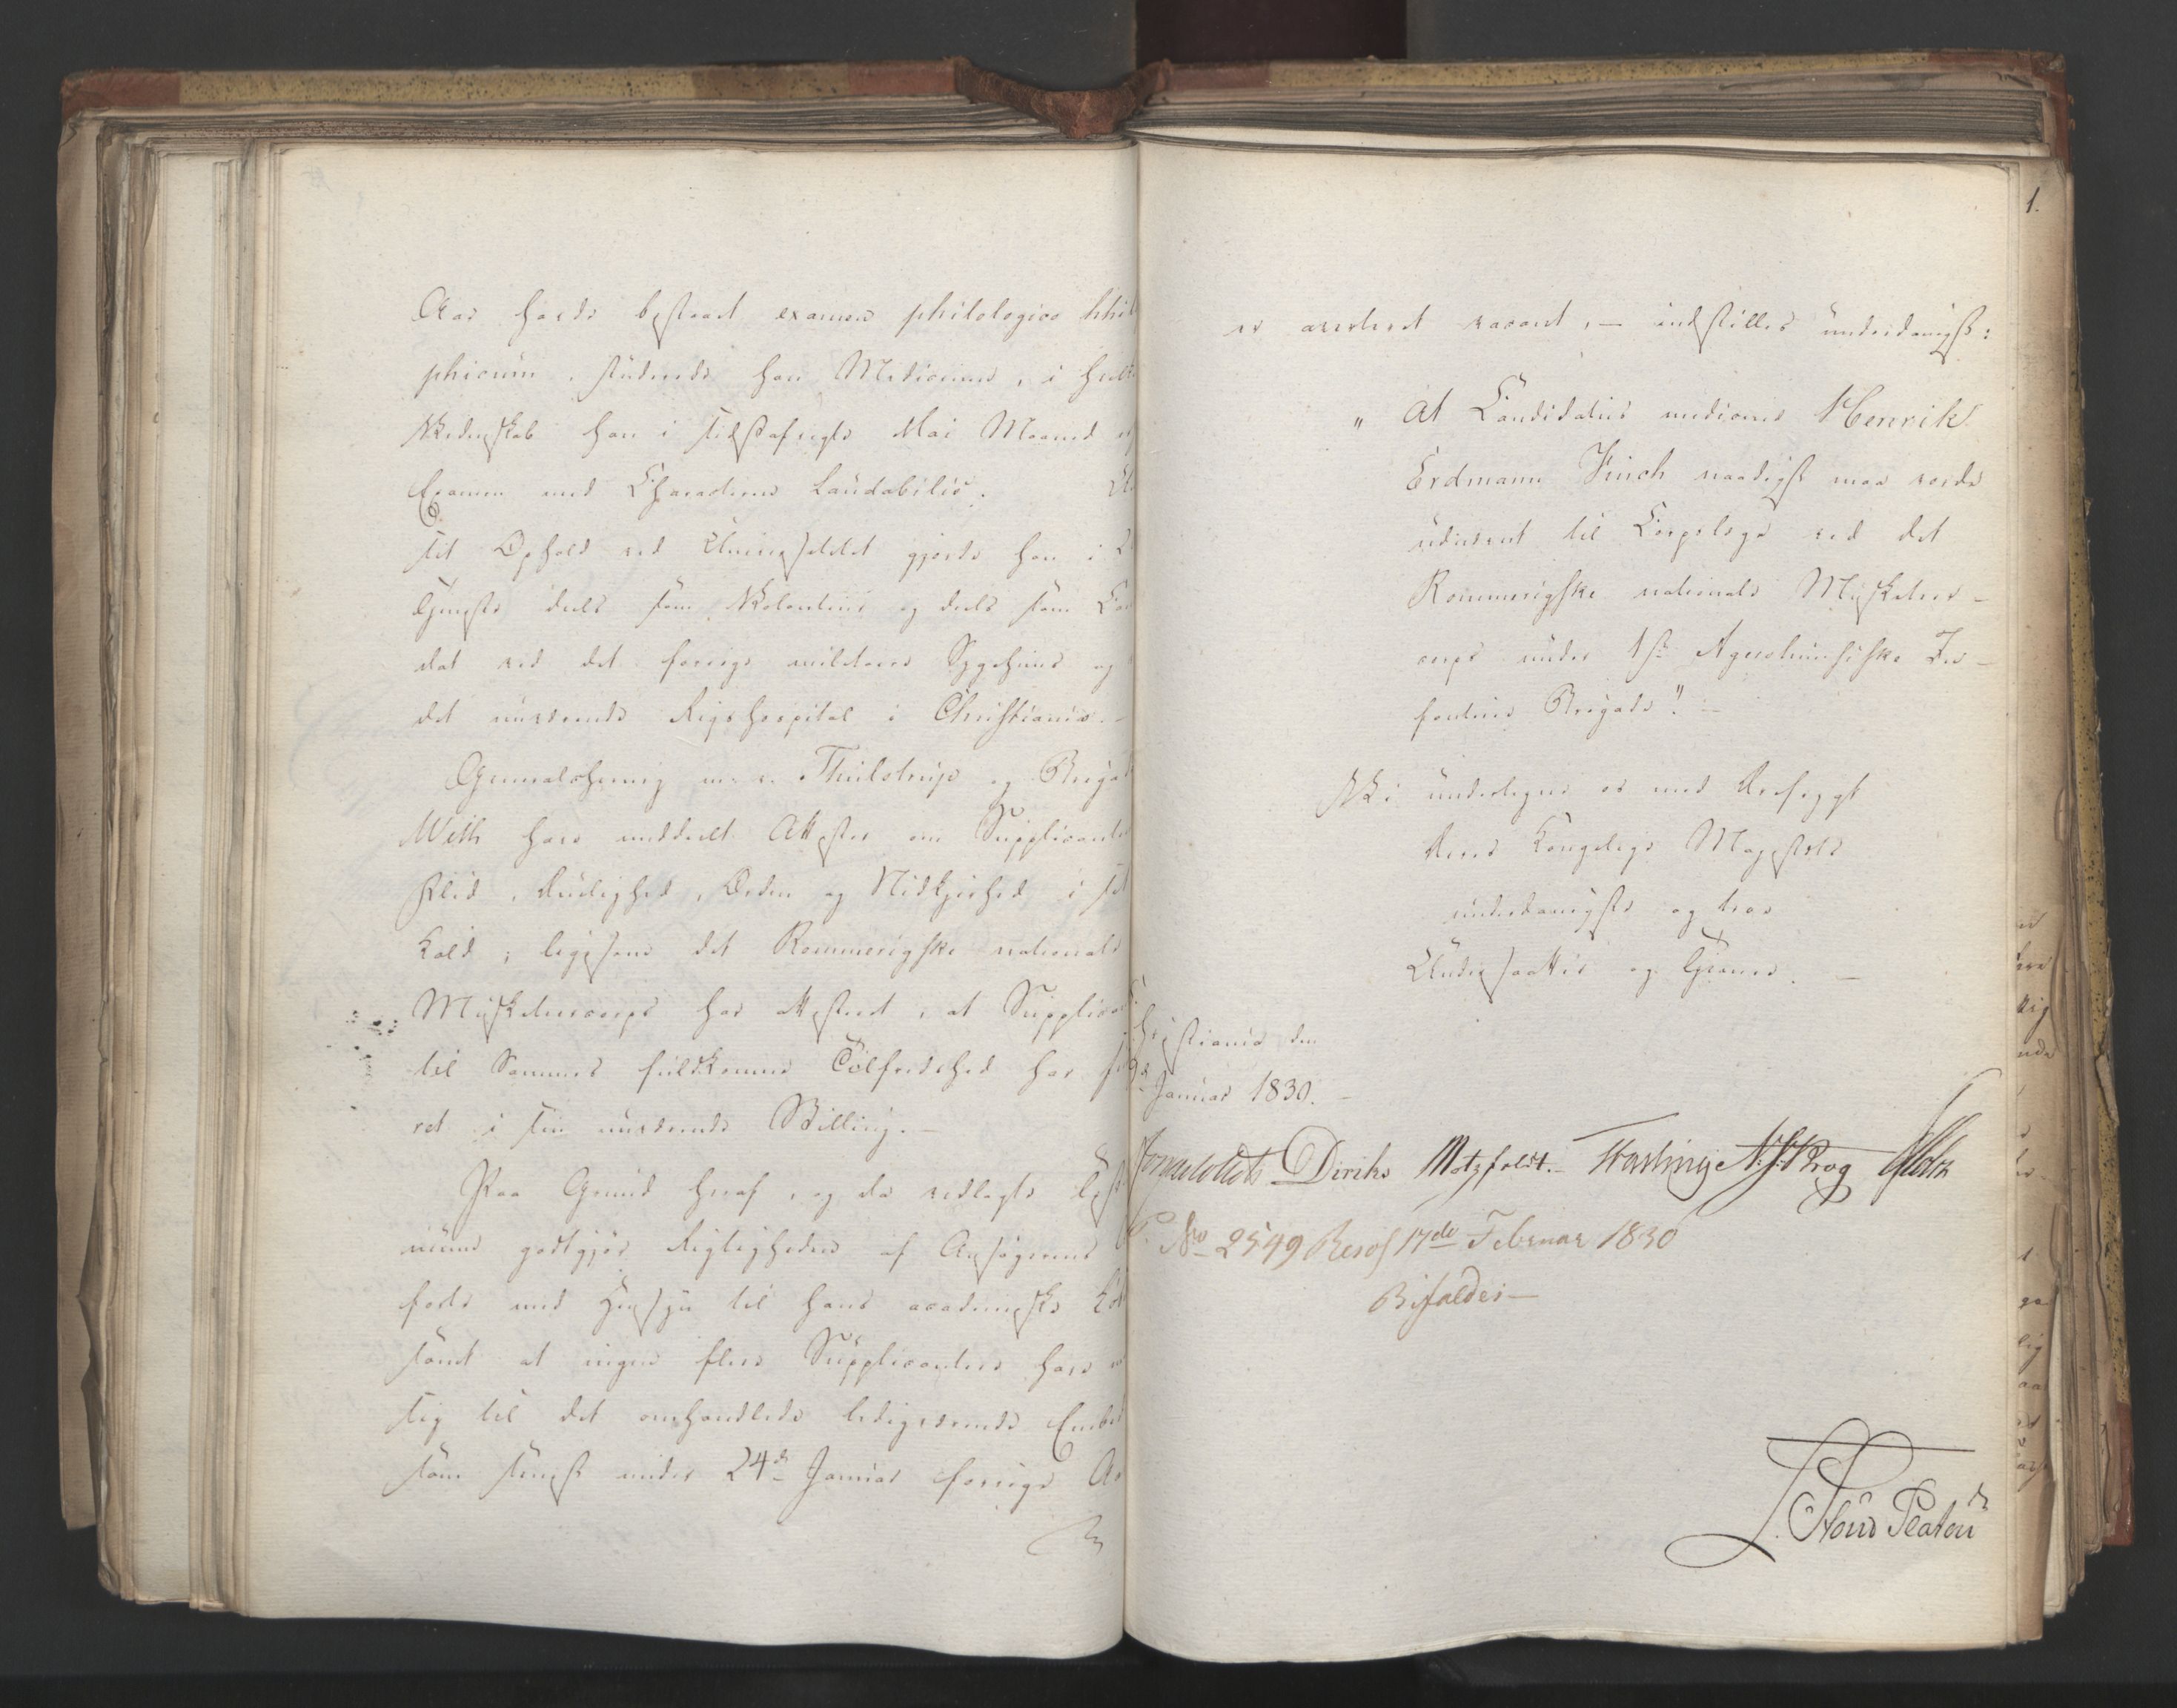 Aar havde bestaaet examen philologico phil
phicum, studerede han Medicinen, i hvilke
Videnskab han i sidstafvigte Mai Maaned
Examen med Characteren Laudabilis.
sit Ophold ved Universitetet gjorde han i
Tjeneste deels som Volontair og deels som Can
dat ved det forrige militaire Sygehuus og
det nuværende Rigshospital i Christiania. -
Generalchirurg m. v. Thulstrup og Brigad
With have meddeelt Attester om Supplicante
Flid, Duelighed, Orden og Nidkjærhed i sit
Kald; ligesom det Rommerigske nationale
Musketeercorps har attesteret, at Supplican
til Sammes fuldkomne Tilfredshed har
ret i sin nuværende Stilling. -
Paa Grund heraf, og da vedlagte
godtgjør Rigtigheden af Ansøgerens
førte med Hensyn til hans academiske
samt at ingen flere Supplicantere have
sig til det omhandlede ledigværende Embed
som senest under 24de Januar forrige Aa
1.
er vacant, - indstilles underdanigst:
" At Candidatus medicinæ Henrik
Erdmann Finch naadigst maa vorde
udnævnt til Corpslæge ved det
Rommerigske nationale Musketeer-
corps under 1ste Agershuusiske In-
fanterie Brigade". -
Vi undertegne os med Dybeste
Deres Kongelige Majestæts
underdanigste og troe
Undersaatter og Tjenere. -
Christiania den
Januar 1830. -
Diriks Motzfeldt. - Fasting N: J: Krog
P. No 2549 Resol 17de Februar 1830
Bifaldes -
Platen